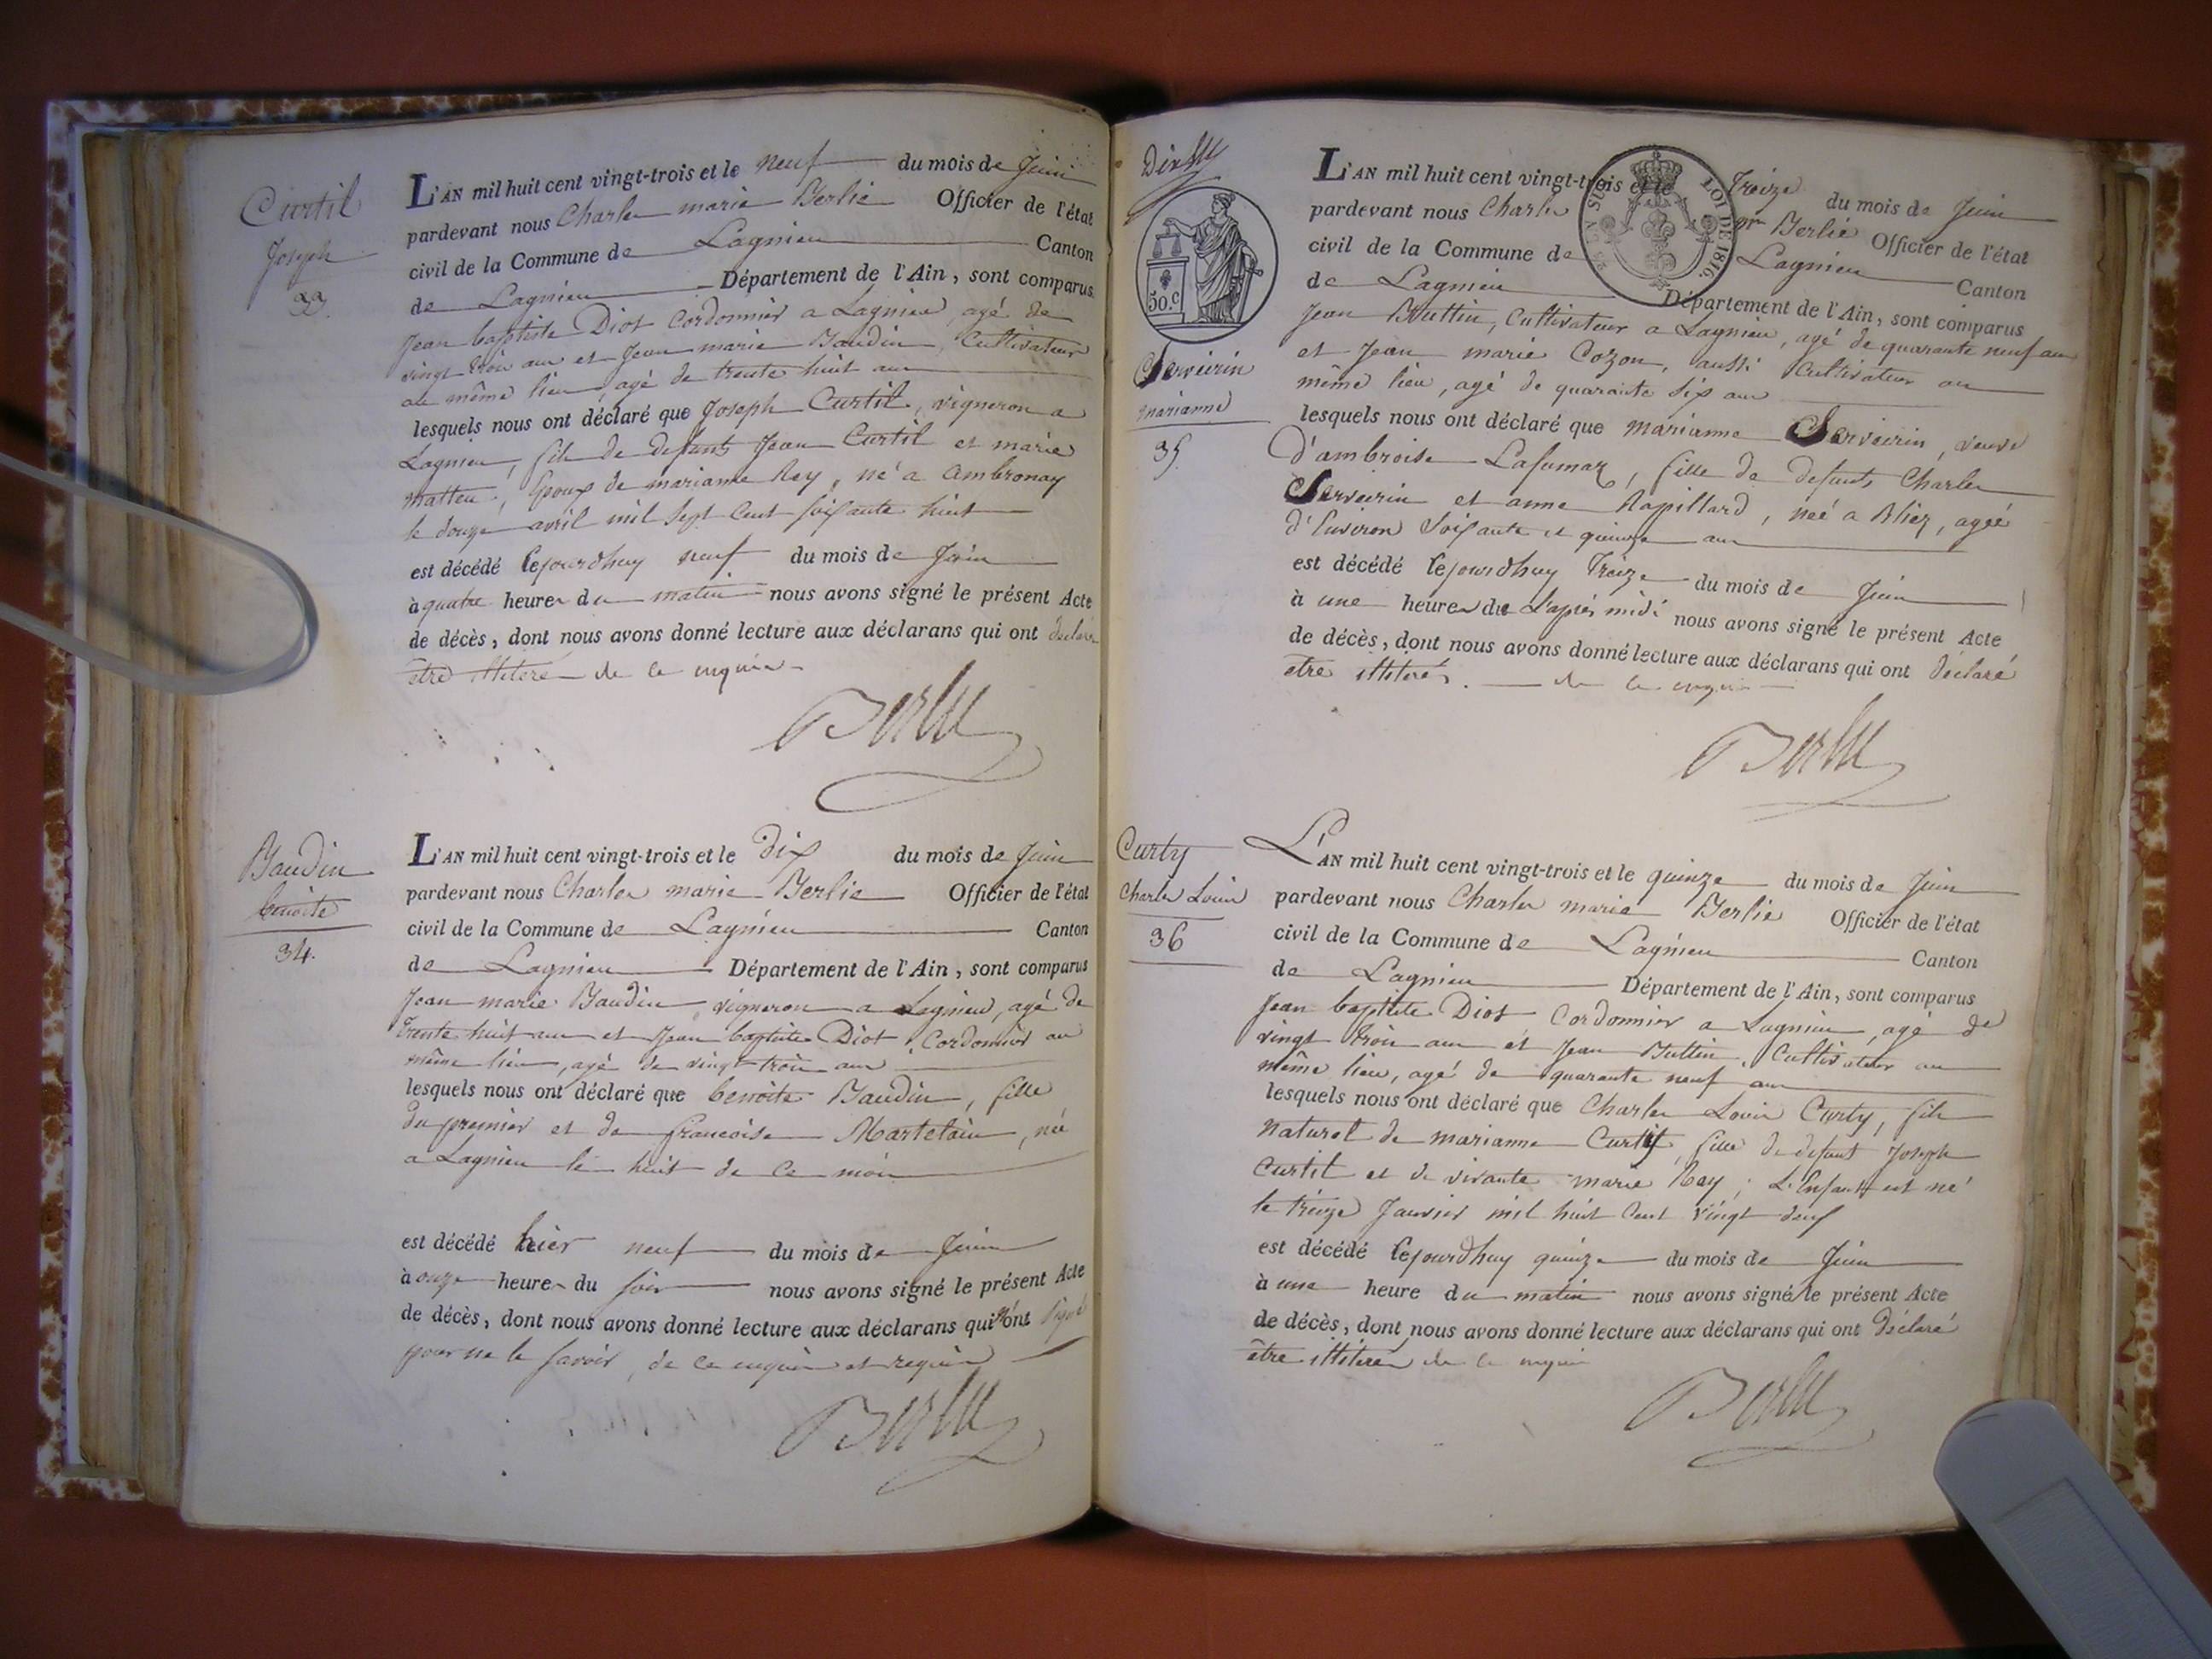 Curtil
Joseph
33.
L'AN mil huit cent vingt-trois et le neuf du mois de Juin
pardevant nous Charles marie Berlie Officier de l'état
civil de la Commune de Lagnieu Canton
de Lagnieu Département de l'Ain, sont comparus
Jean baptiste Diot Cordonnier a Lagnieu, agé de
vingt trois ans et Jean marie Baudin, Cultivateur
au même lieu, agé de trente huit ans
lesquels nous ont déclaré que Joseph Curtil, vigneron a
Lagnieu, fils de defunts Jean Curtil et marie
matteu, Epoux de marianne Rey, né a ambronay
le douze avril mil sept Cent soixante huit
est décédé Cejourdhuy neuf du mois de Juin
à quatre heures du matin nous avons signé le présent Acte
de décès, dont nous avons donné lecture aux déclarans qui ont déclaré
être illiterés de ce enquis
Berlie
Baudin
benoite
34.
L'AN mil huit cent vingt-trois et le Dix du mois de Juin
pardevant nous Charles marie Berlie Officier de l'état
civil de la Commune de Lagnieu Canton
de Lagnieu Département de l'Ain, sont comparus
Jean marie Baudin, vigneron a Lagnieu, agé de
trente huit ans et Jean baptiste Diot Cordonnier au
même lieu, agé de vingt trois ans
lesquels nous ont déclaré que benoite Baudin, fille
du premier et de francoise Martelain, née
a Lagnieu le huit de ce mois
est décédé hier neuf du mois de Juin
à onze heures du soir nous avons signé le présent Acte
de décès, dont nous avons donné lecture aux déclarans qui n'ont signé
pour ne le savoir, de ce enquis et requis
Berlie
30.c
LOI DE 1816.
Serverin
marianne
35.
L'AN mil huit cent vingt-trois et le Treize du mois de Juin
pardevant nous Charles mie Berlie Officier de l'état
civil de la Commune de Lagnieu Canton
de Lagnieu Département de l'Ain, sont comparus
Jean Buttin, Cultivateur a Lagnieu, agé de quarante neuf ans
et Jean marie Cozon, aussi Cultivateur au
même lieu, agé de quarante six ans
lesquels nous ont déclaré que marianne Serverin, veuve
D'ambroise Lafumaz, fille de defunts Charles
Serverin et anne Rapillard, née a Bliez, agée
d'Environ Soixante et quinze ans
est décédé Cejourdhuy Treize du mois de Juin
à une heure du L'après midi nous avons signé le présent Acte
de décès, dont nous avons donné lecture aux déclarans qui ont Déclaré
être illiterés. de ce enquis
Berlie
Curty
Charles Louis
36
L'AN mil huit cent vingt-trois et le quinze du mois de Juin
pardevant nous Charles marie Berlie Officier de l'état
civil de la Commune de Lagnieu Canton
de Lagnieu Département de l'Ain, sont comparus
Jean baptiste Diot Cordonnier a Lagnieu, agé de
vingt trois ans et Jean Buttin, Cultivateur au
même lieu, agé de quarante neuf ans
lesquels nous ont déclaré que Charles Louis Curty, fils
naturel de marianne Curtil, fille de defunt Joseph
Curtil et de vivante marie Rey; L'Enfant est né
le treize Janvier mil huit Cent vingt deux
est décédé Cejourdhuy quinze du mois de Juin
à une heure du matin nous avons signé le présent Acte
de décès, dont nous avons donné lecture aux déclarans qui ont Déclaré
être illiterés de ce enquis
Berlie